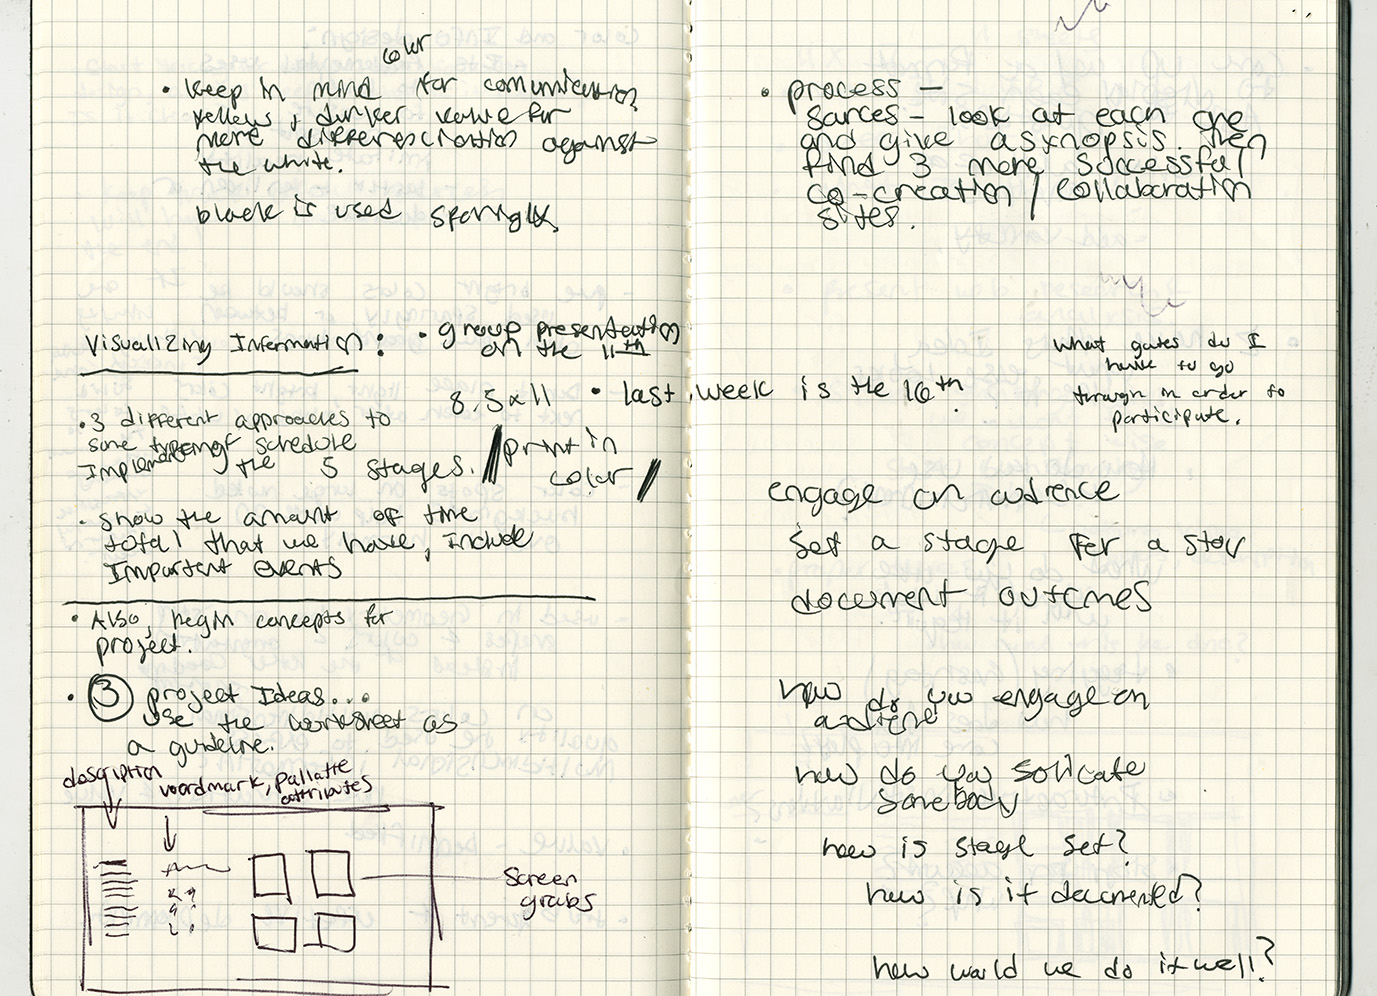 color
• keep in mind for comunication
yellows, darker value for
more differenciation against
the white.
black is used sparingly.
Visualizing Information:
• group presentation
on the 11th
8.5x11
• last week is the 16th
• 3 different approaches to
some type of schedule
Implementing the 5 stages.
print in
color
• show the amount of time
total that we have, Include
Important events
• Also, begin concepts for
project.
• 3 project Ideas...
use the worksheet as
a guideline.
description
wordmark, pallatte
attributes
screen
grabs
• process —
sources — look at each one
and give a synopsis. then
find 3 more successful
co-creation / collaboration
sites.
what gates do I
have to go
through in order to
participate.
engage an audience
set a stage for a story
document outcomes
how do you engage an
audience
how do you solicate
somebody
how is stage set?
how is it documented?
how would we do it well?